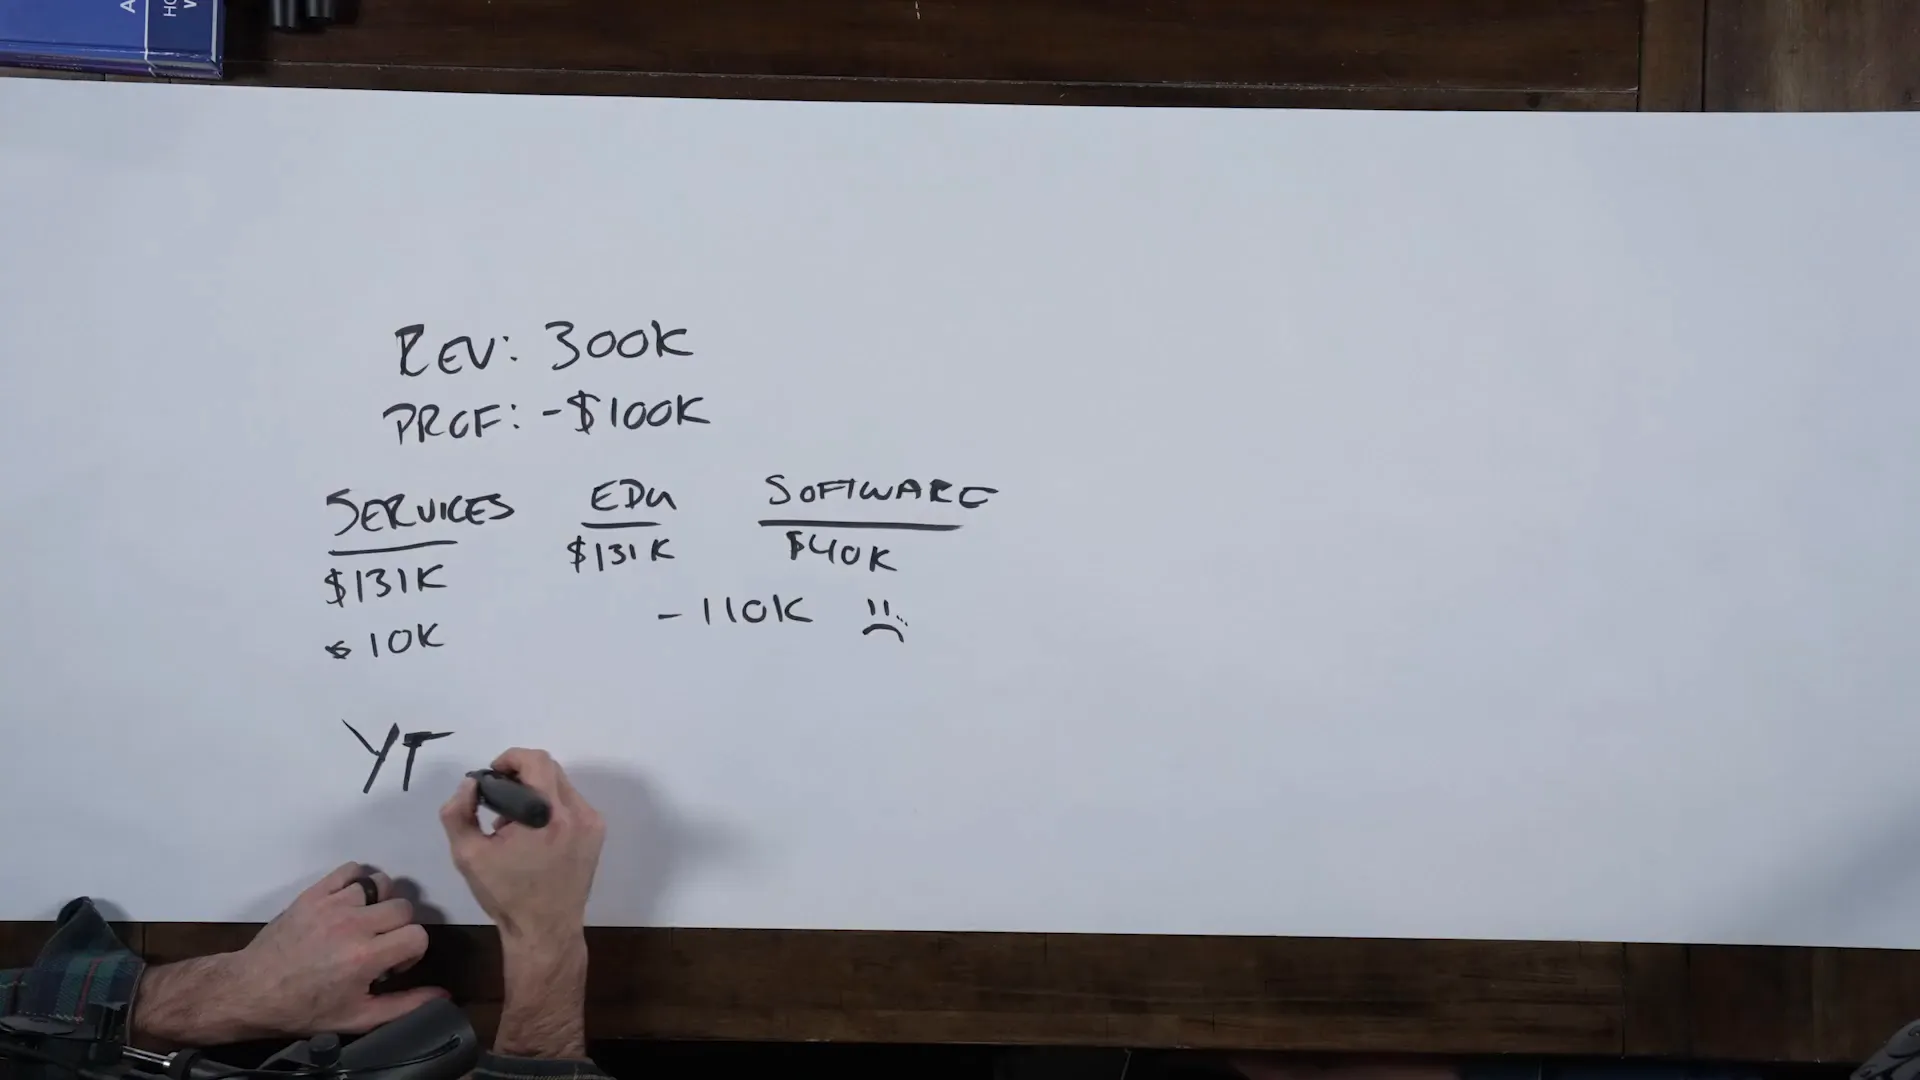 REV: 300K
PROF: -$100K
SERVICES EDU SOFTWARE
$131K $131K $40K
$10K -110K
YT